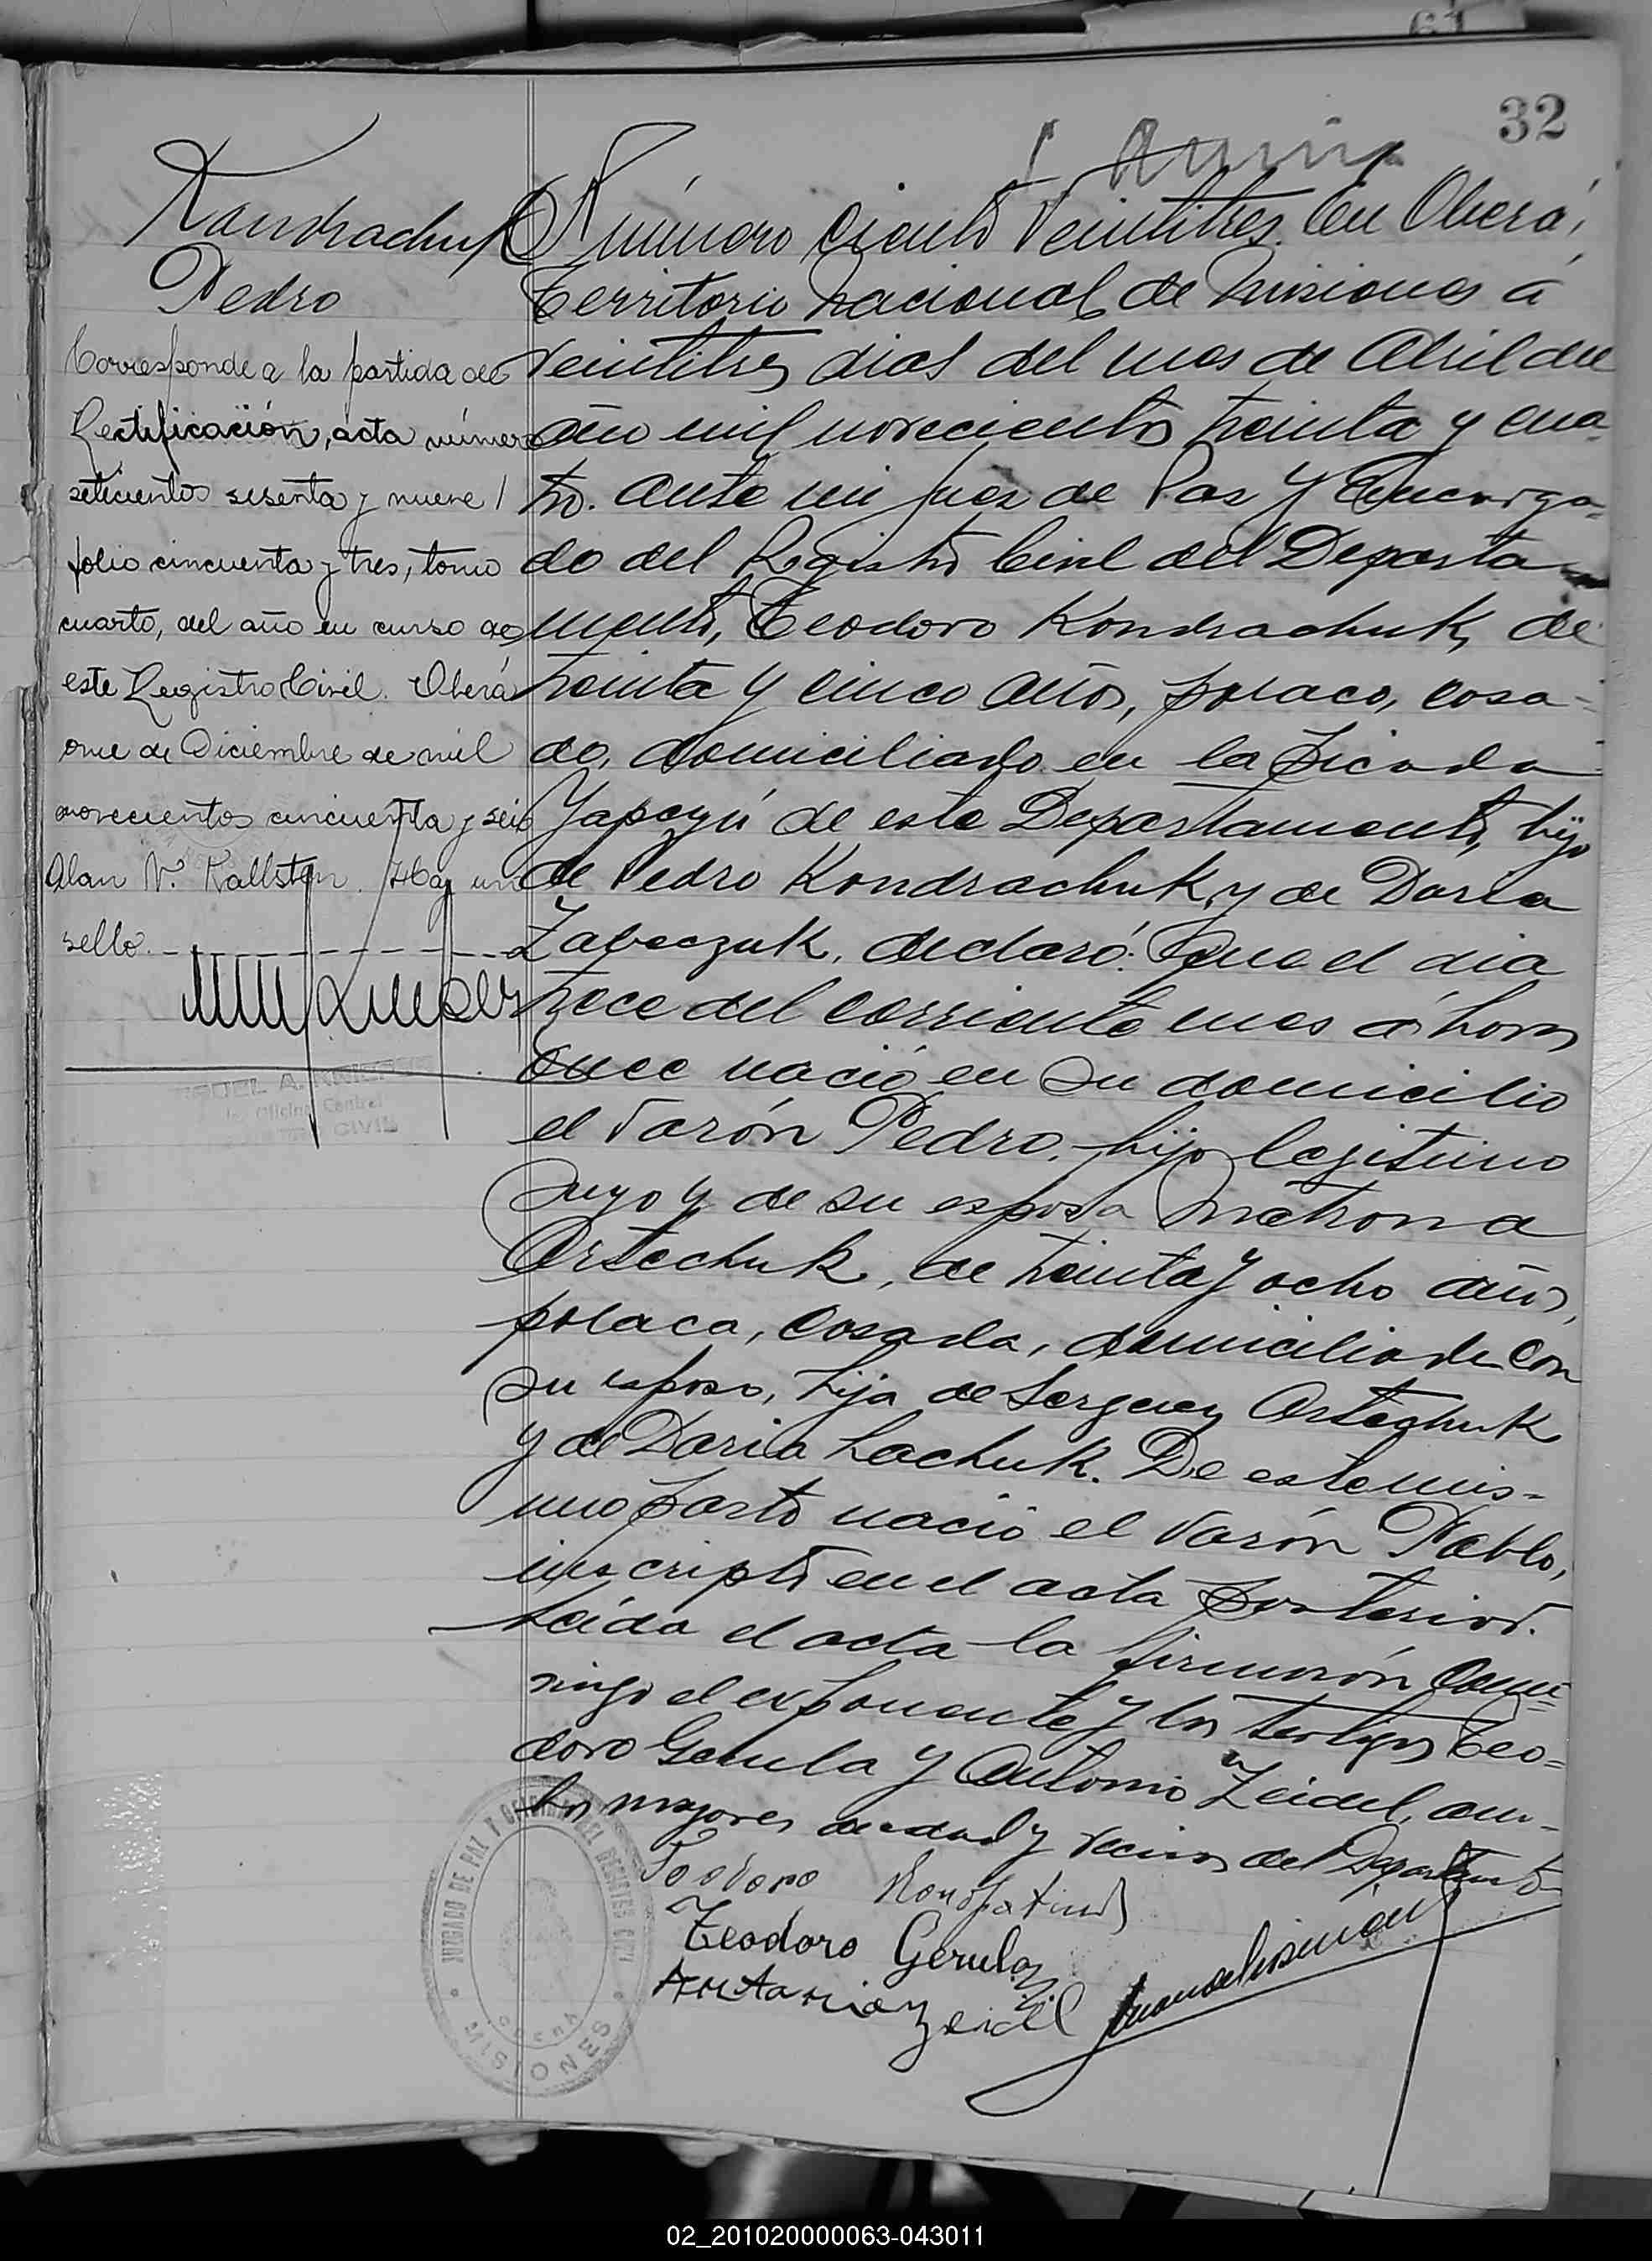 32
Kondrachuk
Pedro
Corresponde a la partida de
Rectificación, acta número
setecientos sesenta y nueve /
folio cincuenta y tres, tomo
cuarto, del año en curso de
este Registro Civil. Oberá
once de Diciembre de mil
novecientos cincuenta y seis
Alan V. Kallsten. Hay un
sello.
Número Ciento Veintitres. En Oberá,
Territorio Nacional de Misiones á
veintitres dias del mes de Abril del
año mil novecientos treinta y cua-
tro. Ante mi Juez de Paz y Encarga-
do del Registro Civil del Departa-
mento, Teodoro Kondrachuk, de
treinta y cinco años, polaco, casa-
do, domiciliado en la Picada
Yapeyú de este Departamento, hijo
de Pedro Kondrachuk y de Daria
Zabaczuk, declaró: Que el dia
trece del corriente mes á horas
once nació en su domicilio
el varón Pedro, hijo legitimo
suyo y de su esposa Matrona
Ostechuk, de treinta y ocho años,
polaca, casada, domiciliada con
su esposo, hija de Serguey Ostechuk
y de Daria Lachuk. De este mis-
mo parto nació el varón Pablo,
inscripto en el acta posterior.
Leida el acta la firmarón con-
migo el exponente y los testigos Teo-
doro Gerula y Antonio Zeidel, am-
bos mayores de edad y vecinos del Departamento
Teodoro
Teodoro Gerula
Antonio Zeidel
JUZGADO DE PAZ Y OFICINA DEL REGISTRO CIVIL
OBERÁ
MISIONES
Oficina Central
CIVIL
02_201020000063-043011